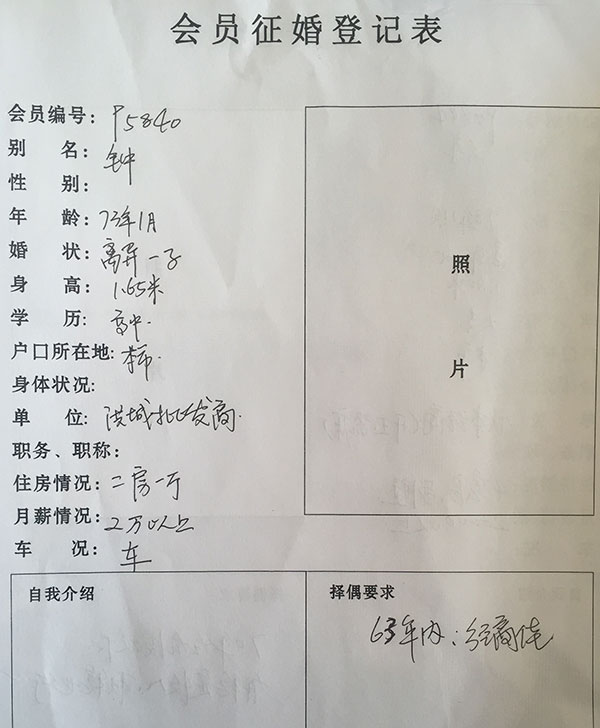 会员征婚登记表
会员编号: P5840
别 名: 钟
性 别:
年 龄: 73年1月
婚 状: 离异一子
身 高: 1.65米
学 历: 高中.
户口所在地: 本市.
身体状况:
单 位: 洪城批发商.
职务、职称:
住房情况: 二房一厅
月薪情况: 2万以上
车 况: 车
照
片
自我介绍
择偶要求
63年内: 经商佳